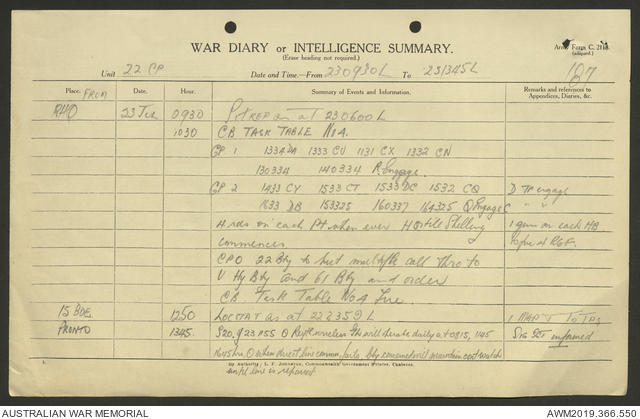 WAR DIARY or INTELLIGENCE SUMMARY.
(Erase heading not required.)
Army Form C. 2118.
(adapted.)
Unit 22 CP
Date and Time—From 230930L To 231345L
187
Place. FROM Date. Hour. Summary of Events and Information. Remarks and references to Appendices, Diaries, &c.
RHO 23 0930 as at 230600L
1030 CB TASK TABLE No4.
GP 1 1334DA 1333 CU 1131 CX 1332 CN
130334 140334 R Engage.
GP 2 1433 CY 1533 CT 1533 DC 1532 CQ D TP engage
1633 DB 153325 160337 164325 Q Engage C " "
on each Pt when ever Hostile Shelling 1 gun on each HB
commences
CPO 22 Bty to multiple call thro to
V Hy Bty and 61 Bty and order
CB Task Table No4 Fire.
15 BDE. 1250 LOCSTAT as at 222359L 1 MAP T To TPS
PRONTO 1345. will operate daily at 0815, 1145 SIG SGT informed
when direct line comm. fails. will maintain watch
until line is repaired
By Authority: L. F. Johnston, Commonwealth Government Printer, Canberra.
AUSTRALIAN WAR MEMORIAL
AWM2019.366.550